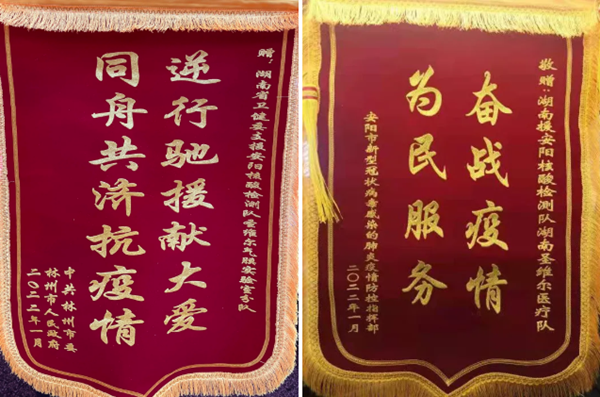 赠：湖南省卫健委支援安阳核酸检测队圣维尔气膜实验室分队
逆行驰援献大爱
同舟共济抗疫情
中共林州市委
林州市人民政府
二〇二二年一月
敬赠：湖南援安阳核酸检测队湖南圣维尔医疗队
奋战疫情
为民服务
安阳市新型冠状病毒感染的肺炎疫情防控指挥部
二〇二二年一月